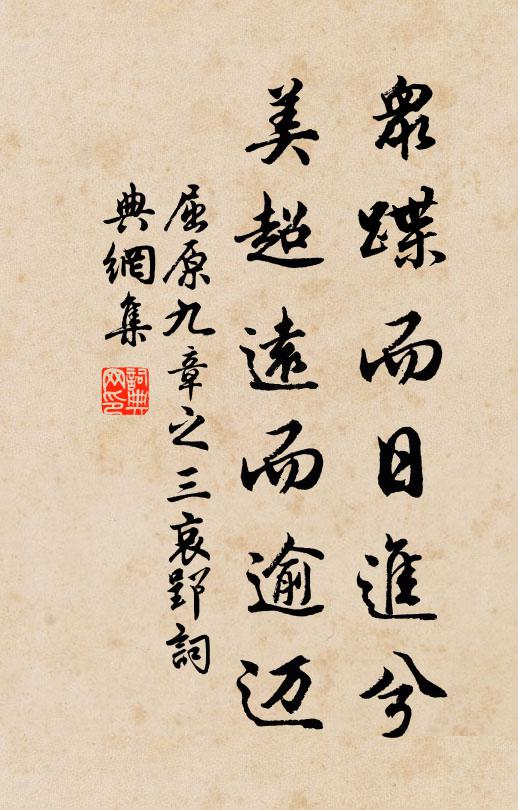 眾蹀而日進兮
美超遠而逾迈
屈原九章之三哀郢詞
典網集
詞典
网印